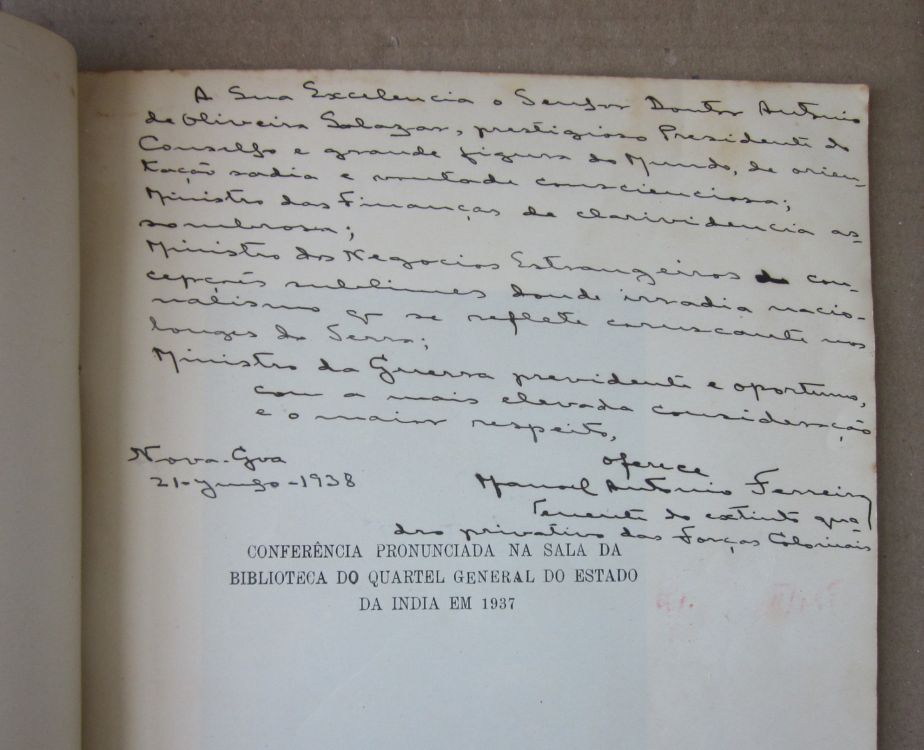 A Sua Excelencia o Senhor Doutor António
de Oliveira Salazar, prestigioso Presidente do
Conselho e grande figura do Mundo, de orien-
tação sadia e vontade conscienciosa;
Ministro das Finanças de clarividencia as-
sombrosa;
Ministro dos Negocios Estrangeiros de con-
cepções sublimes donde irradia nacio-
nalismo q̃ se reflete coruscante nos
longes da Terra;
Ministro da Guerra previdente e oportuno,
com a mais elevada consideração
e o maior respeito,
oferece
Nova-Goa
21-Junho-1938
Manoel António Ferreira
Tenente do extinto qua-
dro privativo das Forças Coloniais
CONFERÊNCIA PRONUNCIADA NA SALA DA
BIBLIOTECA DO QUARTEL GENERAL DO ESTADO
DA INDIA EM 1937